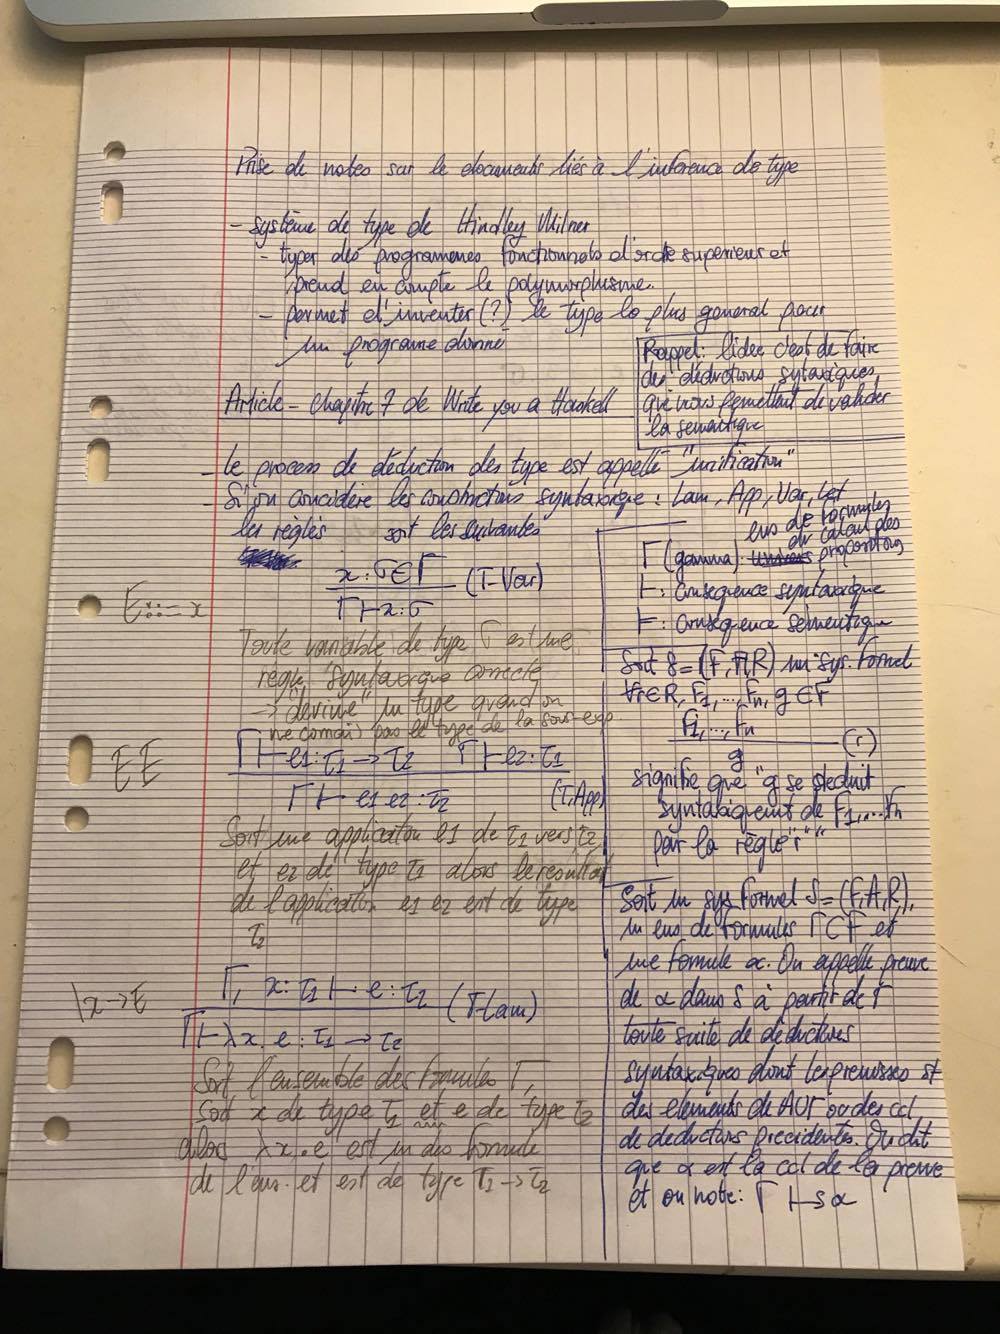 Prise de notes sur le documents liés à l'inférence de type
- système de type de Hindley Milner
- typer des programmes fonctionnels d'ordre superieur et
prend en compte le polymorphisme.
- permet d'inventer (?) le type le plus general pour
un programe donné
Rappel: l'idée c'est de faire
des déductions sytaxiques
que nous permettent de valider
la semantique
Article - chapitre 7 de Write you a Haskell
- le process de déduction des type est appellé "unification"
- Si on concidère les constructeurs syntaxique : Lam, App, Var, Let
les règles sont les suivantes
x : σ ∈ Γ
Γ ⊢ x : σ
(T-Var)
E ::= x
Toute variable de type σ est une
règle syntaxique correcte
→ "dérive" un type quand on
ne connaît pas le type de la sous-exp.
Γ ⊢ e1 : τ1 → τ2   Γ ⊢ e2 : τ1
Γ ⊢ e1 e2 : τ2
(T-App)
E E
Soit une application e1 de τ1 vers τ2
et e2 de type τ1 alors le resultat
de l'application e1 e2 est de type
τ2
Γ, x : τ1 ⊢ e : τ2
Γ ⊢ λx. e : τ1 → τ2
(T-Lam)
\x → E
Soit l'ensemble des formules Γ,
soit x de type τ1 et e de type τ2
alors λx. e est un des formule
de l'ens. et est de type τ1 → τ2
ens de formules
du calcul des
Γ (gamma): propositions
⊢: consequence syntaxique
⊨: consequence sémentique
Soit S = (F, A, R) un sys. formel
∀r ∈ R, F1, ..., Fn, g ∈ F
F1, ..., Fn
g
(r)
signifie que "g se déduit
syntaxiquemt de F1, ... Fn
par la règle "r""
Soit un sys formel S = (F, A, R),
un ens de formules Γ ⊂ F et
une formule α. On appelle preuve
de α dans S à partir de Γ
toute suite de déductions
syntaxiques dont les premisses st
des elements de A∪Γ ou des ccl
de deductions precidentes. On dit
que α est la ccl de la preuve
et on note: Γ ⊢s α